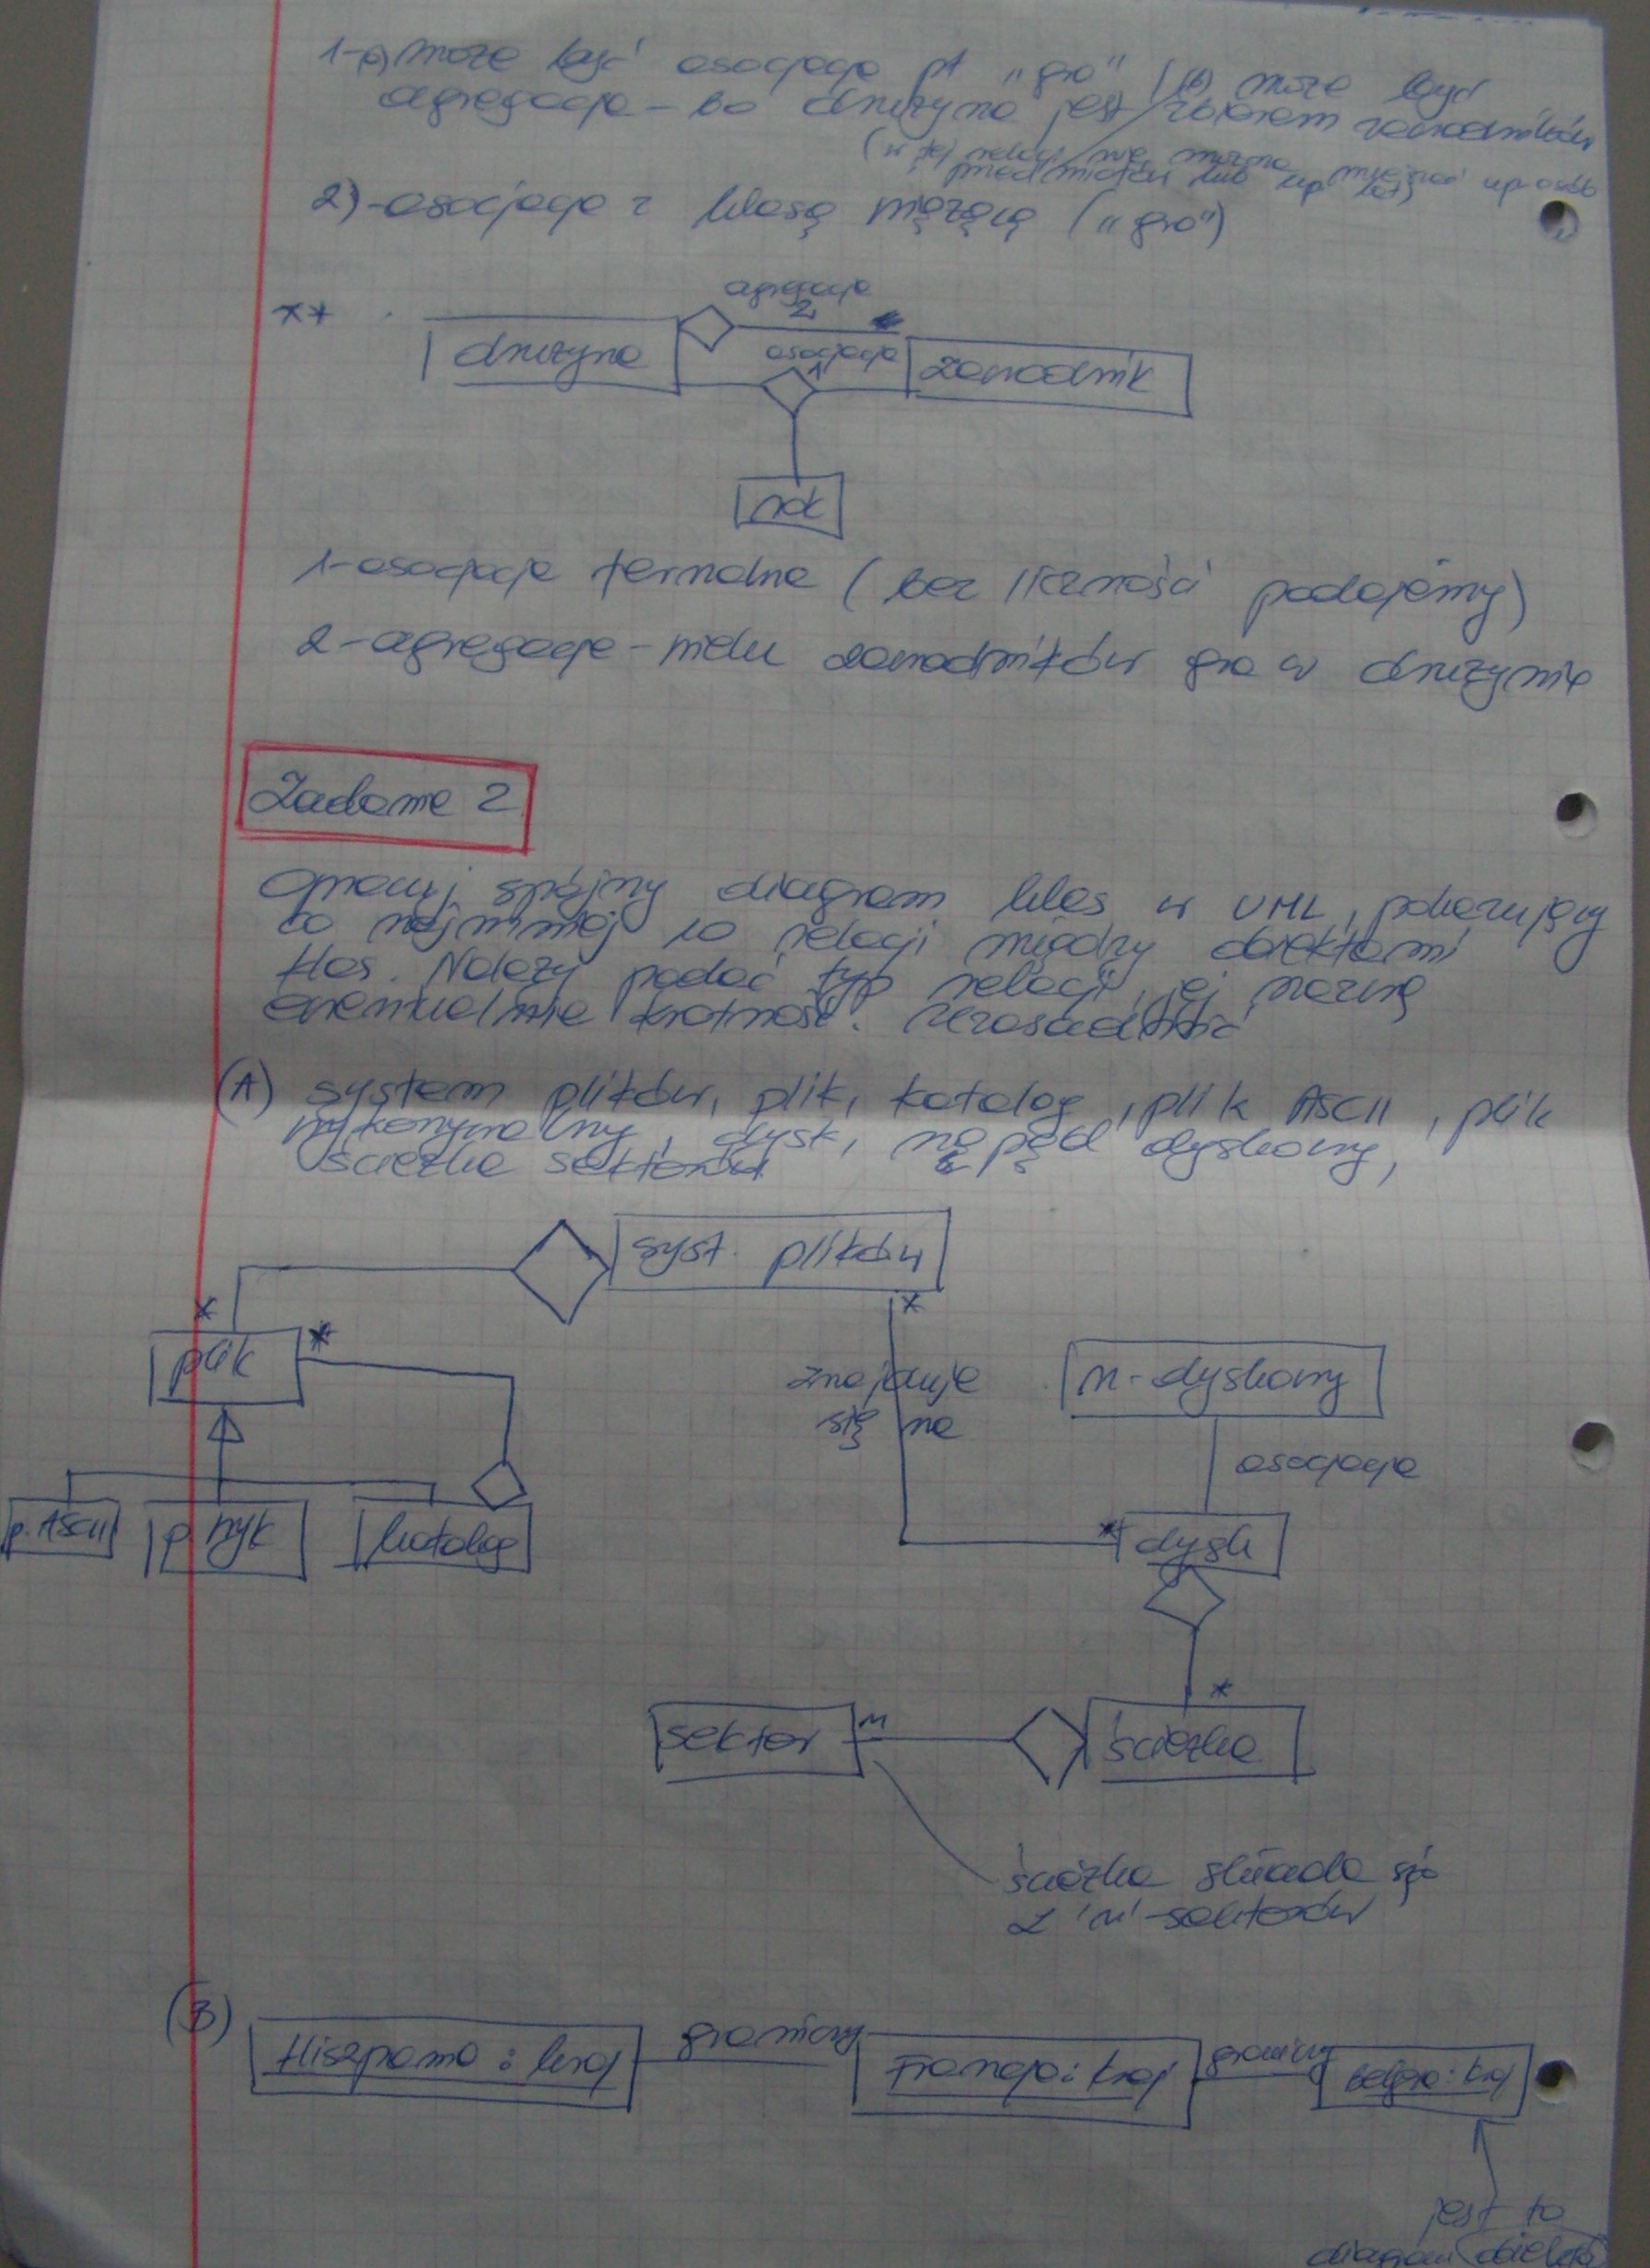 1-a) może być asocjacja pt "gra" / b) może być
agregacja - bo drużyna jest zbiorem zawodników
(w tej relacji nie można mieszać np osób
przedmiotów lub np
2) - asocjacja z klasą wiążącą ("gra")
agregacja
** 2
drużyna asocjacja zawodnik
1
rok
1-asocjacje ternalne (bez liczności podajemy)
2-agregacje - wielu zawodników gra w drużynie
Zadanie 2
Opracuj spójny diagram klas w UML, pokazujący
co najmniej 10 relacji między obiektami
klas. Należy podać typ relacji, jej nazwę
ewentualnie krotność. Uzasadnić
(A) system plików, plik, katalog, plik ASCII, plik
wykonywalny, dysk, napęd dyskowy,
ścieżka sektorów
syst. plików
* * *
plik znajduje n-dyskowy
się na
asocjacja
p. ASCII p wyk katalog * dysk
*
sektor n ścieżka
ścieżka składa się
z 'n' - sektorów
(B) Hiszpania : kraj graniczy Francja : kraj graniczy Belgia : kraj
jest to
diagram obiektów